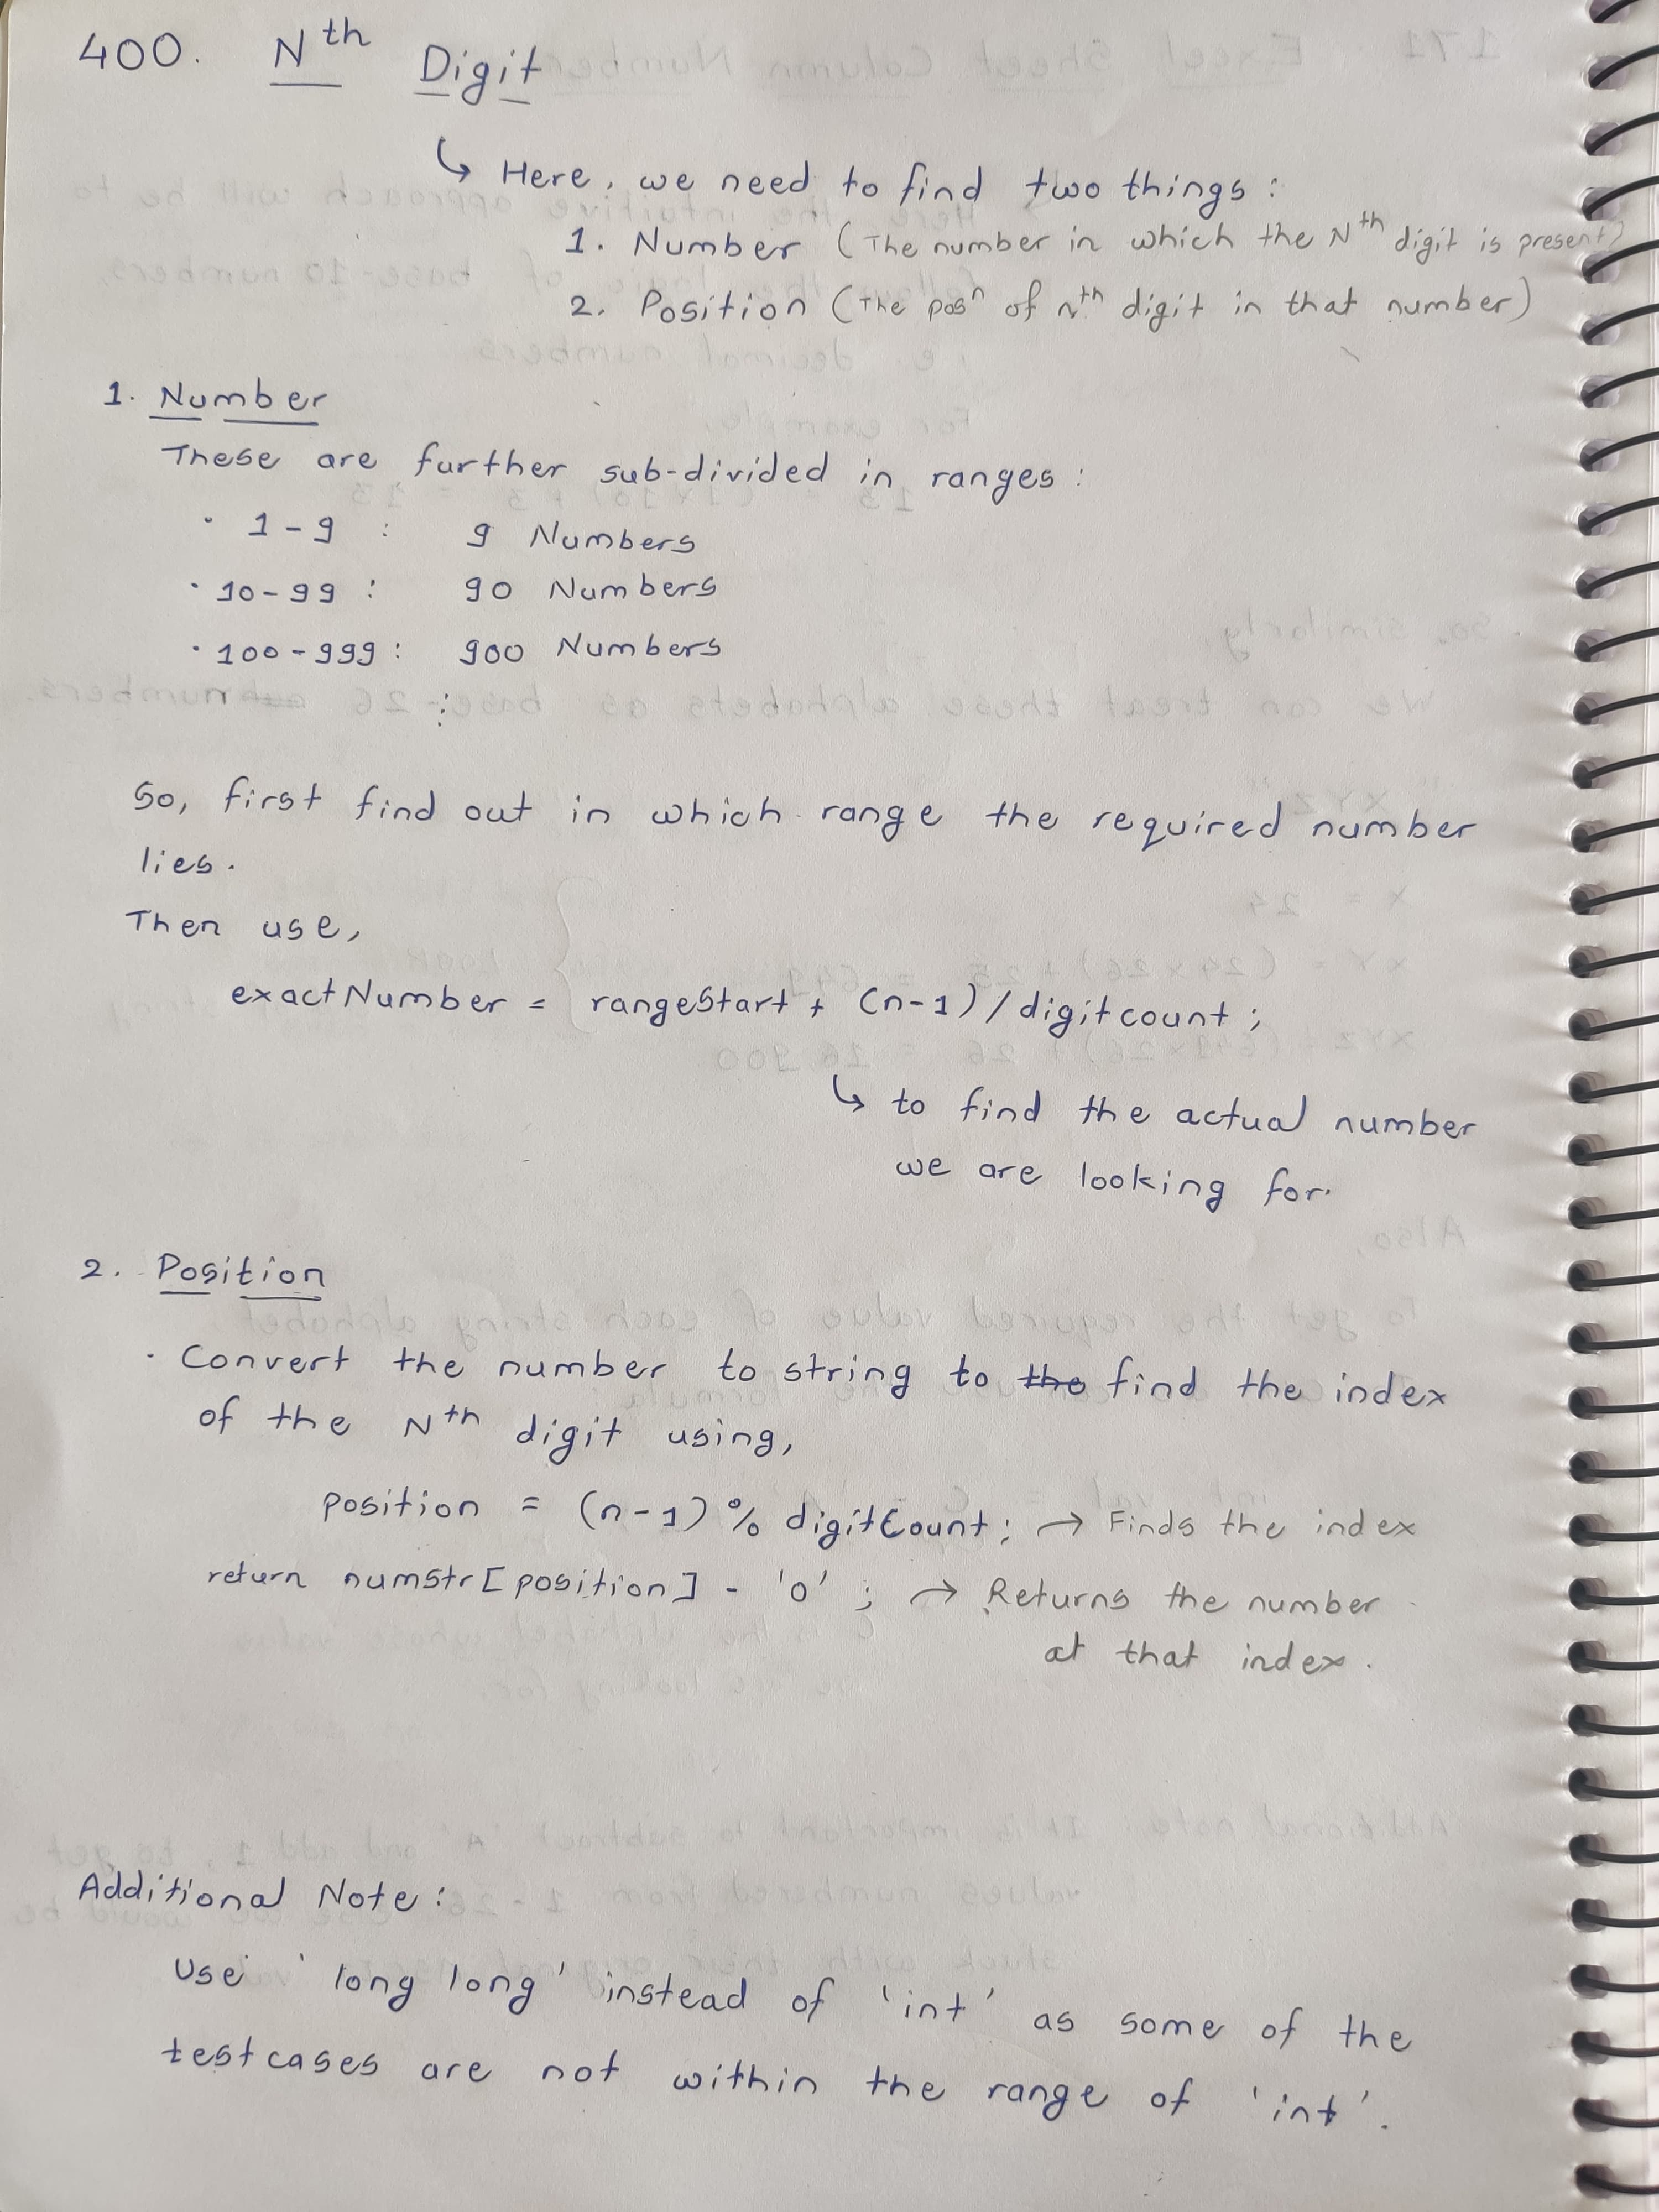 400. Nth Digit
↳ Here, we need to find two things:
1. Number (The number in which the Nth digit is present)
2. Position (The posn of nth digit in that number)
1. Number
These are further sub-divided in ranges:
· 1-9 : 9 Numbers
· 10-99 : 90 Numbers
· 100-999 : 900 Numbers
⋮
So, first find out in which range the required number
lies.
Then use,
exactNumber = rangeStart + (n-1)/digitcount;
↳ to find the actual number
we are looking for.
2. Position
· Convert the number to string to the find the index
of the Nth digit using,
position = (n-1) % digitCount; → Finds the index
return numstr[position] - '0'; → Returns the number
at that index.
Additional Note:
Use 'long long' instead of 'int' as some of the
testcases are not within the range of 'int'.